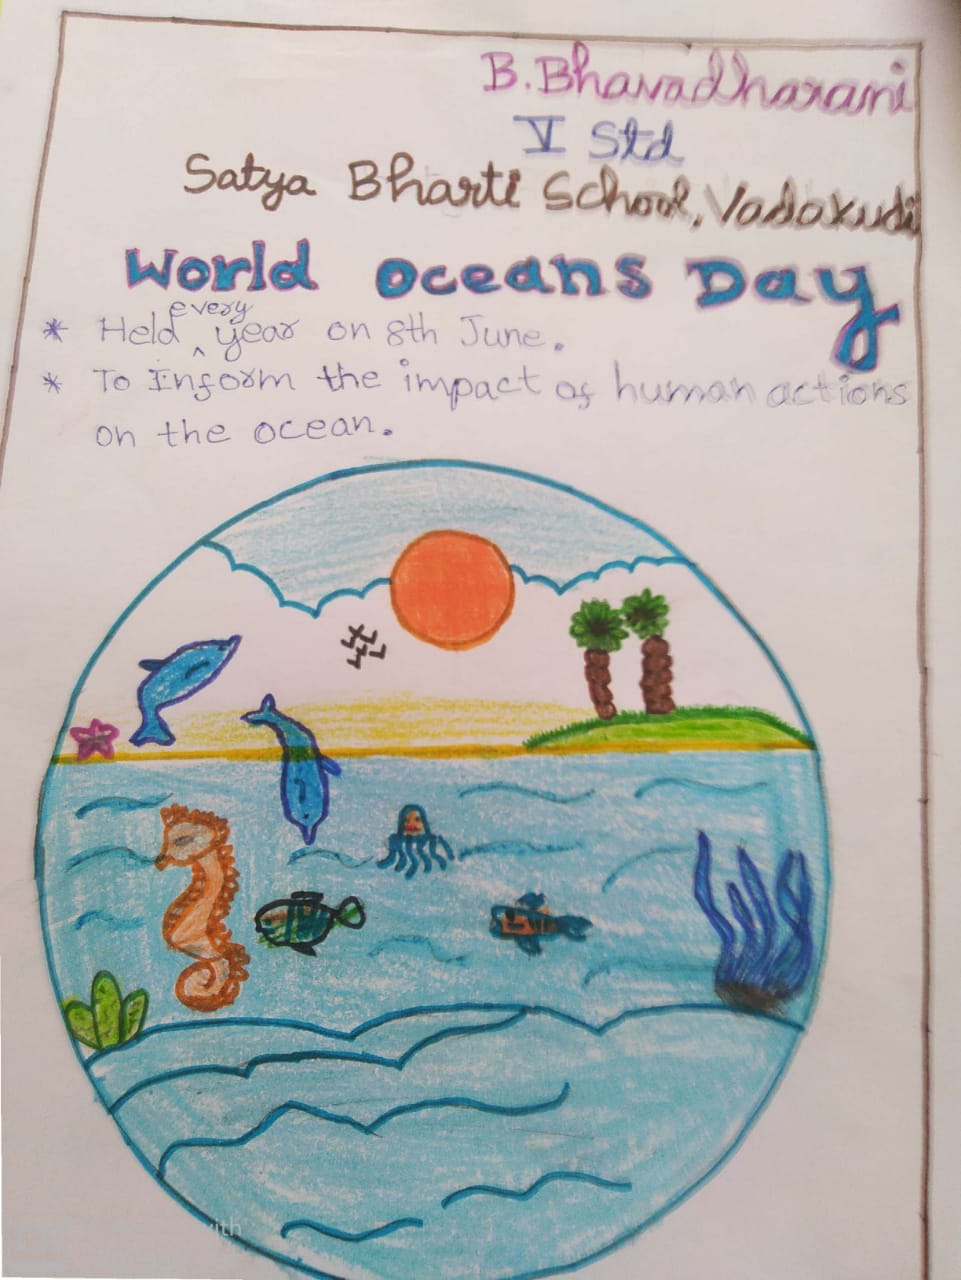 B. Bhavadharani
V Std
Satya Bharti School, Vadakudi
World Oceans Day
* Held every year on 8th June.
* To Inform the impact of human actions
on the ocean.
with